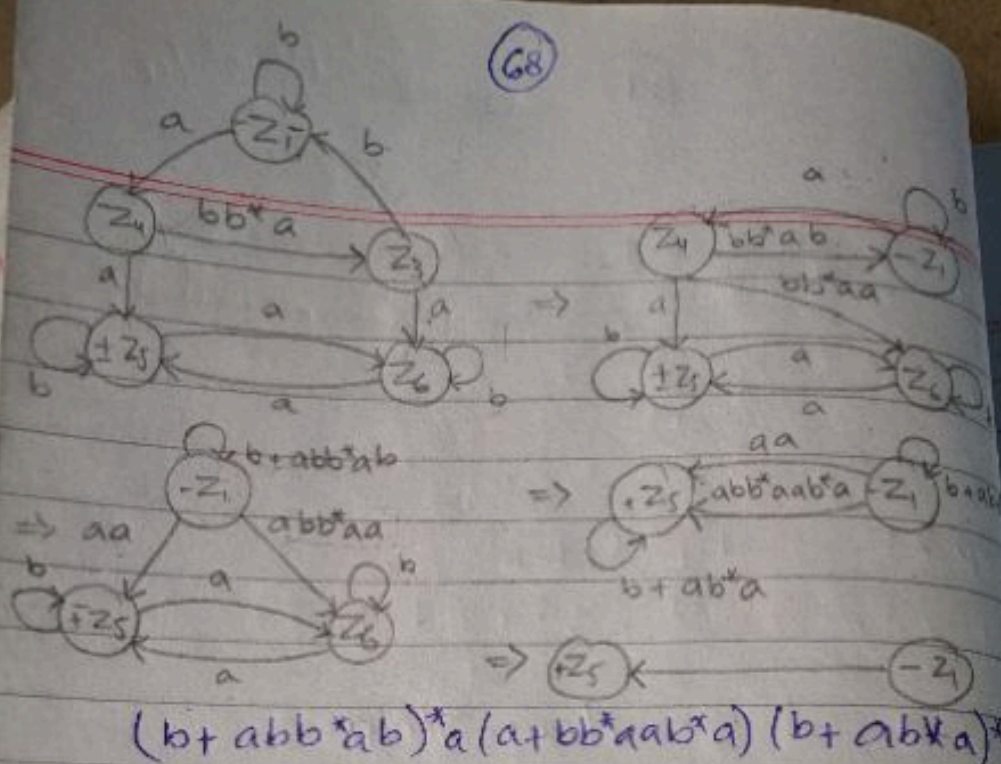 68
b
-Z₁
a
b
Z₄
bb*a
Z₃
a
a
a
±Z₅
Z₆
b
b
a
=>
a
b
Z₄
bb*ab
-Z₁
bb*aa
a
b
a
±Z₅
Z₆
a
b+abb*ab
-Z₁
=> aa
abb*aa
b
a
b
±Z₅
Z₆
a
=>
aa
+Z₅
abb*aab*a
-Z₁
b+ab*a
=> +Z₅
-Z₁
(b+abb*ab)*a(a+bb*aab*a)(b+ab*a)*